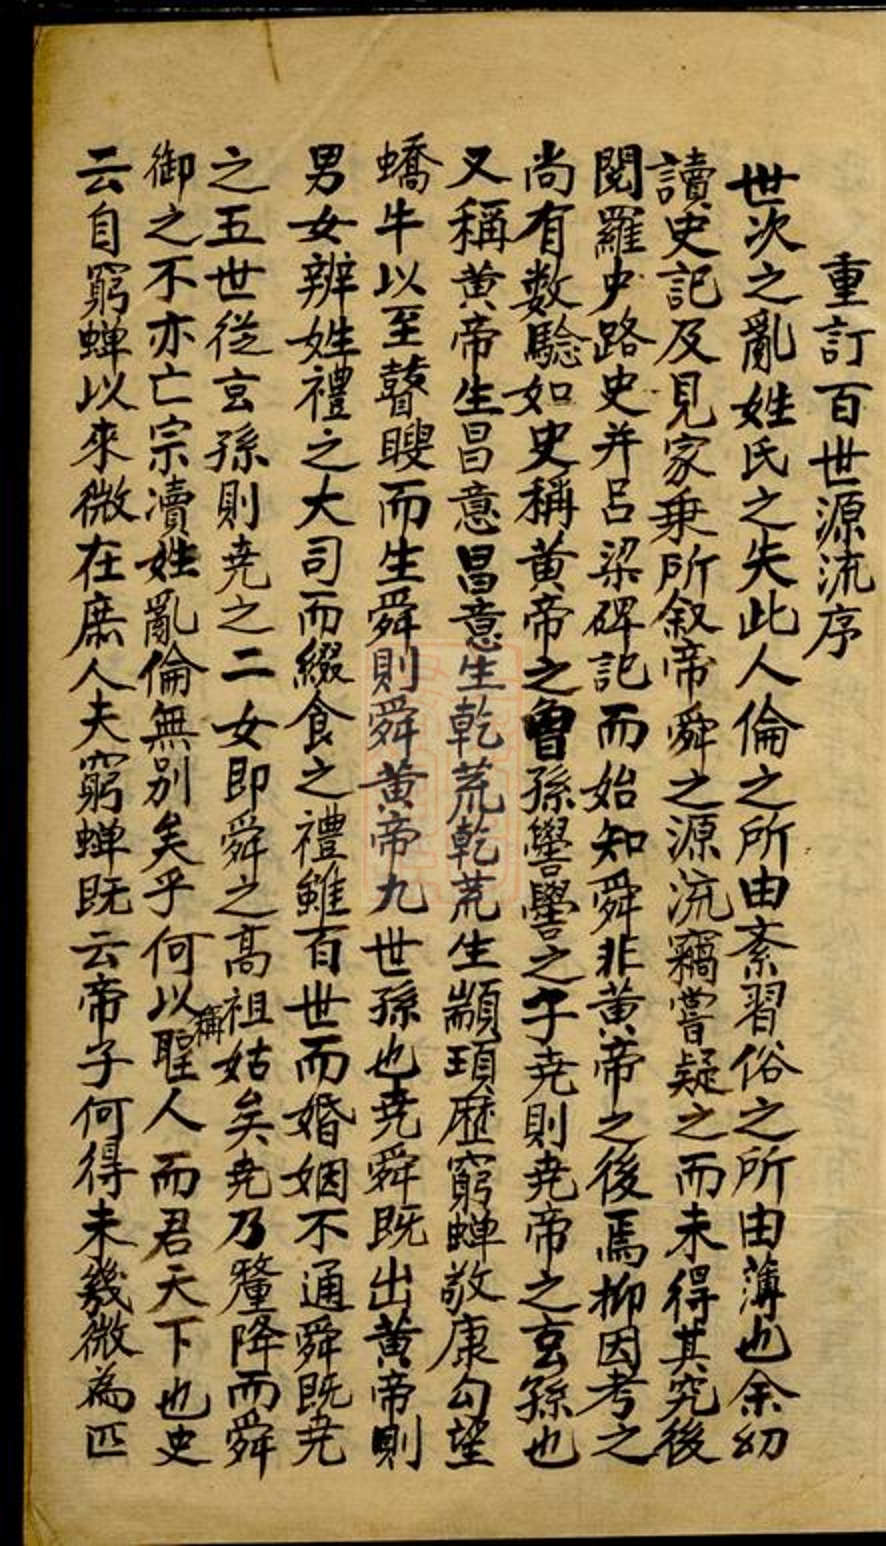 重訂百世源流序
世次之亂姓氏之失此人倫之所由紊習俗之所由薄也余幼
讀史記及見家乗所叙帝舜之源流竊嘗疑之而未得其究後
閱羅史路史并呂梁碑記而始知舜非黄帝之後焉抑因考之
尚有数騐如史稱黄帝之曾孫嚳嚳之子尭則尭帝之玄孫也
又稱黄帝生昌意昌意生乾荒乾荒生顓頊歴窮蝉敬康勾望
蟜牛以至瞽瞍而生舜則舜黄帝九世孫也尭舜既出黄帝則
男女辨姓禮之大司而綴食之禮雖百世而婚姻不通舜既尭
之五世從玄孫則尭之二女即舜之高祖姑矣尭乃釐降而舜
御之不亦亡宗瀆姓亂倫無别矣乎何以稱聖人而君天下也史
云自窮蝉以來微在庶人夫窮蝉既云帝子何得未幾微為匹